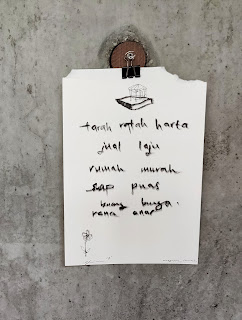 tarah ratah harta
jual laju
rumah murah
siap puas
buang bunga.
rana anar